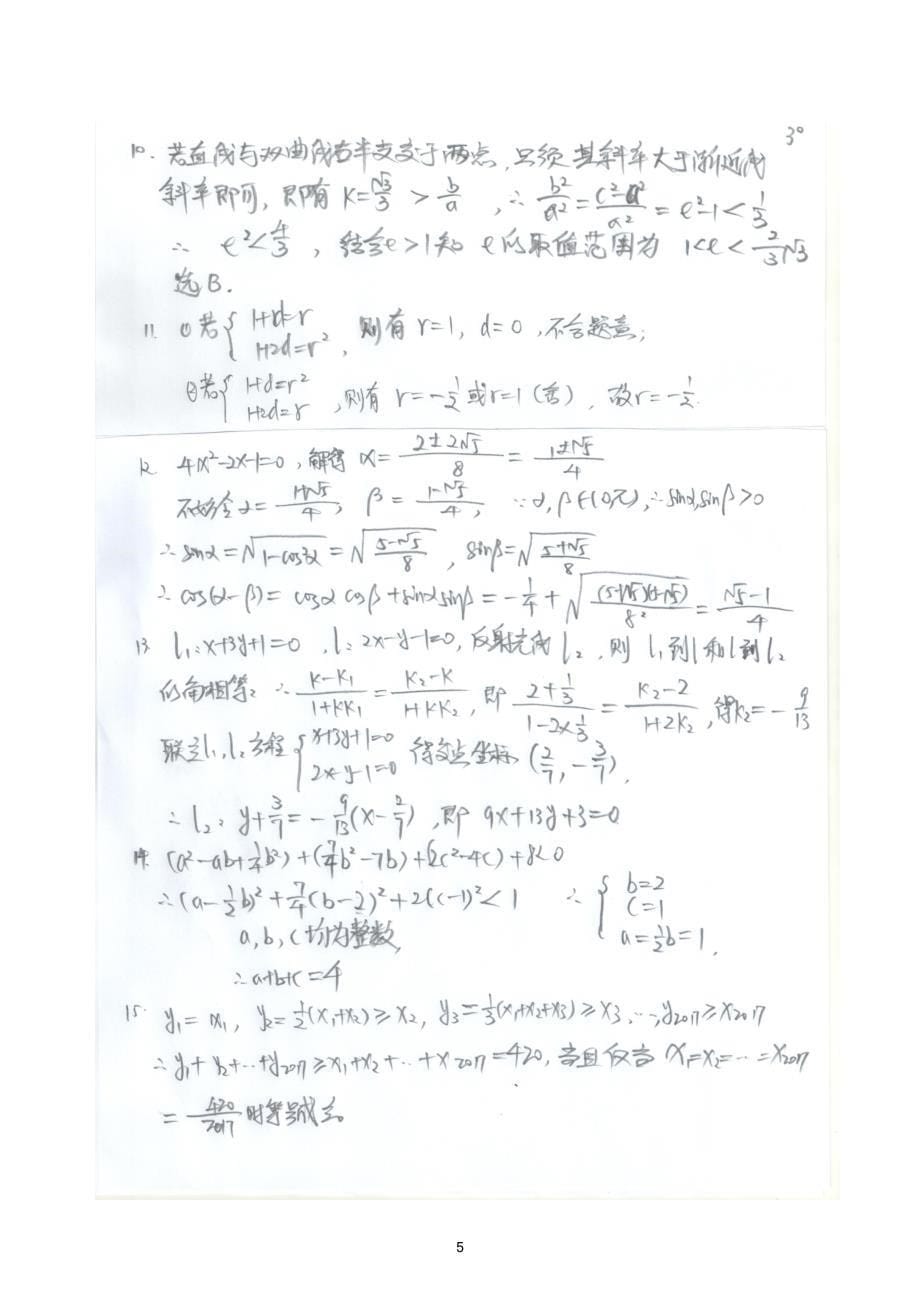 3°
10. 若直线与双曲线右半支交于两点，只须其斜率大于渐近线
斜率即可，即有 K=√3/3 > b/a ，∴ b²/a² = (c²-a²)/a² = e²-1 < 1/3
∴ e²<4/3 ，结合e>1知 e的取值范围为 1<e< 2/3√3
选B.
11. ①若{1+d=r
1+2d=r² ，则有 r=1, d=0 ,不合题意;
②若{1+d=r²
1+2d=r ,则有 r=-1/2 或r=1 (舍) ，故r=-1/2.
12 4x²-2x-1=0 , 解得 x= (2±2√5)/8 = (1±√5)/4
不妨令α= (1+√5)/4 , β= (1-√5)/4 , ∵α,β∈(0,π), ∴sinα,sinβ>0
∴ sinα=√(1-cos²α) = √((5-√5)/8) , sinβ=√((5+√5)/8)
∴ cos(α-β)= cosα cosβ +sinαsinβ = -1/4 + √((5+√5)(5-√5)/8²) = (√5-1)/4
13 l₁: x+3y+1=0 , l: 2x-y-1=0, 反射光线 l₂ , 则 l₁到l和l到l₂
的角相等: ∴ (K-K₁)/(1+KK₁) = (K₂-K)/(1+KK₂) , 即 (2+1/3)/(1-2×1/3) = (K₂-2)/(1+2K₂) , 得k₂=-9/13
联立l₁,l₂方程 {x+3y+1=0
2x-y-1=0 得交点坐标 (2/7, -3/7),
∴ l₂: y+3/7 = -9/13(x-2/7) ,即 9x+13y+3=0
14. (a²-ab+1/4b²)+(7/4b²-7b)+(2c²-4c)+8<0
∴(a-1/2b)²+7/4(b-2)²+2(c-1)²<1 ∴ { b=2
c=1
a,b,c均为整数, a=1/2b=1.
∴a+b+c=4
15. y₁= x₁, y₂=1/2(x₁+x₂)≥x₂, y₃=1/3(x₁+x₂+x₃)≥x₃,…,y₂₀₁₇≥x₂₀₁₇
∴y₁+y₂+…+y₂₀₁₇≥x₁+x₂+…+x₂₀₁₇=420, 当且仅当 x₁=x₂=…=x₂₀₁₇
= 420/2017 时等号成立
5